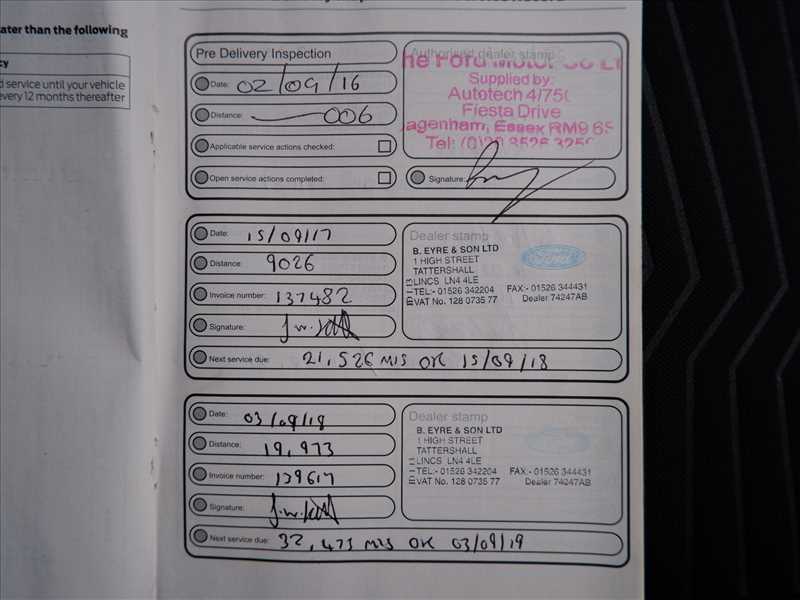 ater than the following
cy
d service until your vehicle
every 12 months thereafter
Pre Delivery Inspection
Date: 02/09/16
Distance: 006
Applicable service actions checked:
Open service actions completed:
Authorised dealer stamp
he Ford Motor Co Lt
Supplied by:
Autotech 4/750
Fiesta Drive
agenham, Essex RM9 6S
Signature:
Date: 15/09/17
Distance: 9026
Invoice number: 137482
Signature:
Next service due: 21,526 MIS OR 15/09/18
Dealer stamp
B. EYRE & SON LTD
1 HIGH STREET
TATTERSHALL
LINCS LN4 4LE
TEL:- 01526 342204 FAX:- 01526 344431
VAT No. 128 0735 77 Dealer 74247AB
Ford
Date: 03/09/18
Distance: 19,973
Invoice number: 139617
Signature:
Next service due: 32,473 MIS OR 03/09/19
Dealer stamp
B. EYRE & SON LTD
1 HIGH STREET
TATTERSHALL
LINCS LN4 4LE
TEL:- 01526 342204 FAX:- 01526 344431
VAT No. 128 0735 77 Dealer 74247AB